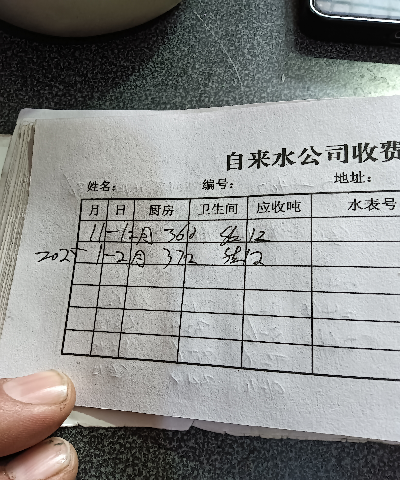 自来水公司收费
姓名: 编号: 地址:
月 日 厨房 卫生间 应收吨 水表号
11-12月 360 12
2025 1-2月 372 12